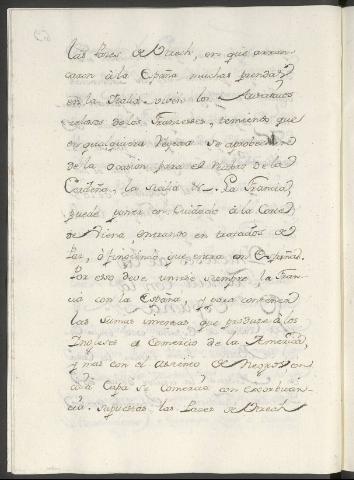 las Pazes de Utrech, en que arran-
caron à la España muchas prendas
en la Italia viven los Austriacos
zelosos de los Franceses, temiendo que
en qualquiera Vereda se aprobechen
de la ocasion para el de la
Cerdeña, la Italia &. La Francia
puede poner en Cuidado à la Corte
de Viena, entrando en tratados de
Paz, ò fingiendo que entra en España.
Por eso deve unirse siempre la Fran-
cia con la España, y para contener
las sumas inmensas que produce à los
Ingleses el Comercio de la America,
y mas con el Asiento de Negros en
cuia Capa se comercia con exorbitan-
cia. Supuestas las Pazes de Utrech